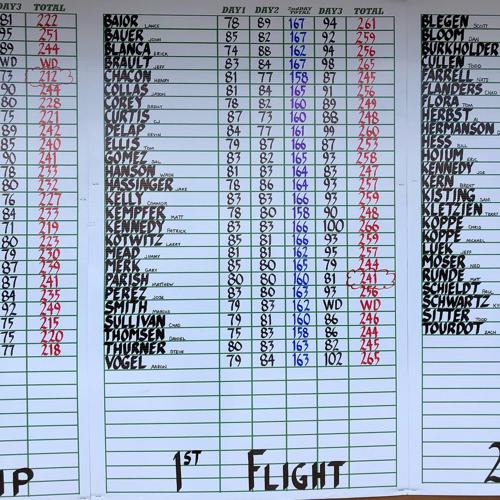 DAY3 TOTAL
81 222
95 251
89 244
WD WD
73 212
90 244
80 228
75 221
89 242
85 240
90 241
78 233
80 232
76 227
84 233
71 219
80 223
79 230
87 239
87 241
84 235
92 249
75 215
75 220
77 218
IP
DAY1 DAY2 2nd DAY TOTAL DAY3 TOTAL
BAIOR LANCE 78 89 167 94 261
BAUER JOHN 85 82 167 92 259
BLANCA ERICK 74 88 162 94 256
BRAULT JEFF 83 84 167 98 265
CHACON HENRY 81 77 158 87 245
COLLAS JASON 81 84 165 91 256
COREY BRENT 78 82 160 89 249
CURTIS CJ 87 73 160 88 248
DELAP KEVIN 84 77 161 99 260
ELLIS TOM 79 87 166 87 253
GOMEZ 83 82 165 93 258
HANSON WADE 81 83 164 83 247
HASSINGER JAKE 78 86 164 93 257
KELLY CONNOR 83 83 166 93 259
KEMPFER MATT 78 80 158 90 248
KENNEDY PATRICK 83 83 166 100 266
KOTWITZ LARRY 85 81 166 93 259
MEAD JIMMY 81 81 162 95 257
MERK GARY 85 80 165 79 244
PARISH MATTHEW 80 80 160 81 241
PEREZ JOSE 83 80 163 93 256
SMITH MARCUS 79 83 162 WD WD
SULLIVAN CHAD 79 81 160 86 246
THOMSEN DANIEL 75 83 158 86 244
THURNER STEVE 80 83 163 82 245
VOGEL AARON 79 84 163 102 265
1ST FLIGHT
BLEGEN SCOTT
BLOOM DAN
BURKHOLDER
CULLEN TODD
FARRELL NATE
FLANDERS CHAD
FLORA TOM
HERBST AL
HERMANSON
HESS BILL
HOIUM ERIC
KENNEDY JOE
KERN BRENT
KISTING SAM
KLETZIEN TERRY
KOPPE CHRIS
KOPPE MICHAEL
LUEK JEFF
MOSER NED
RUNDE MATT
SCHIELDT PAUL
SCHWARTZ
SITTER TODD
TOURDOT ZACH
2